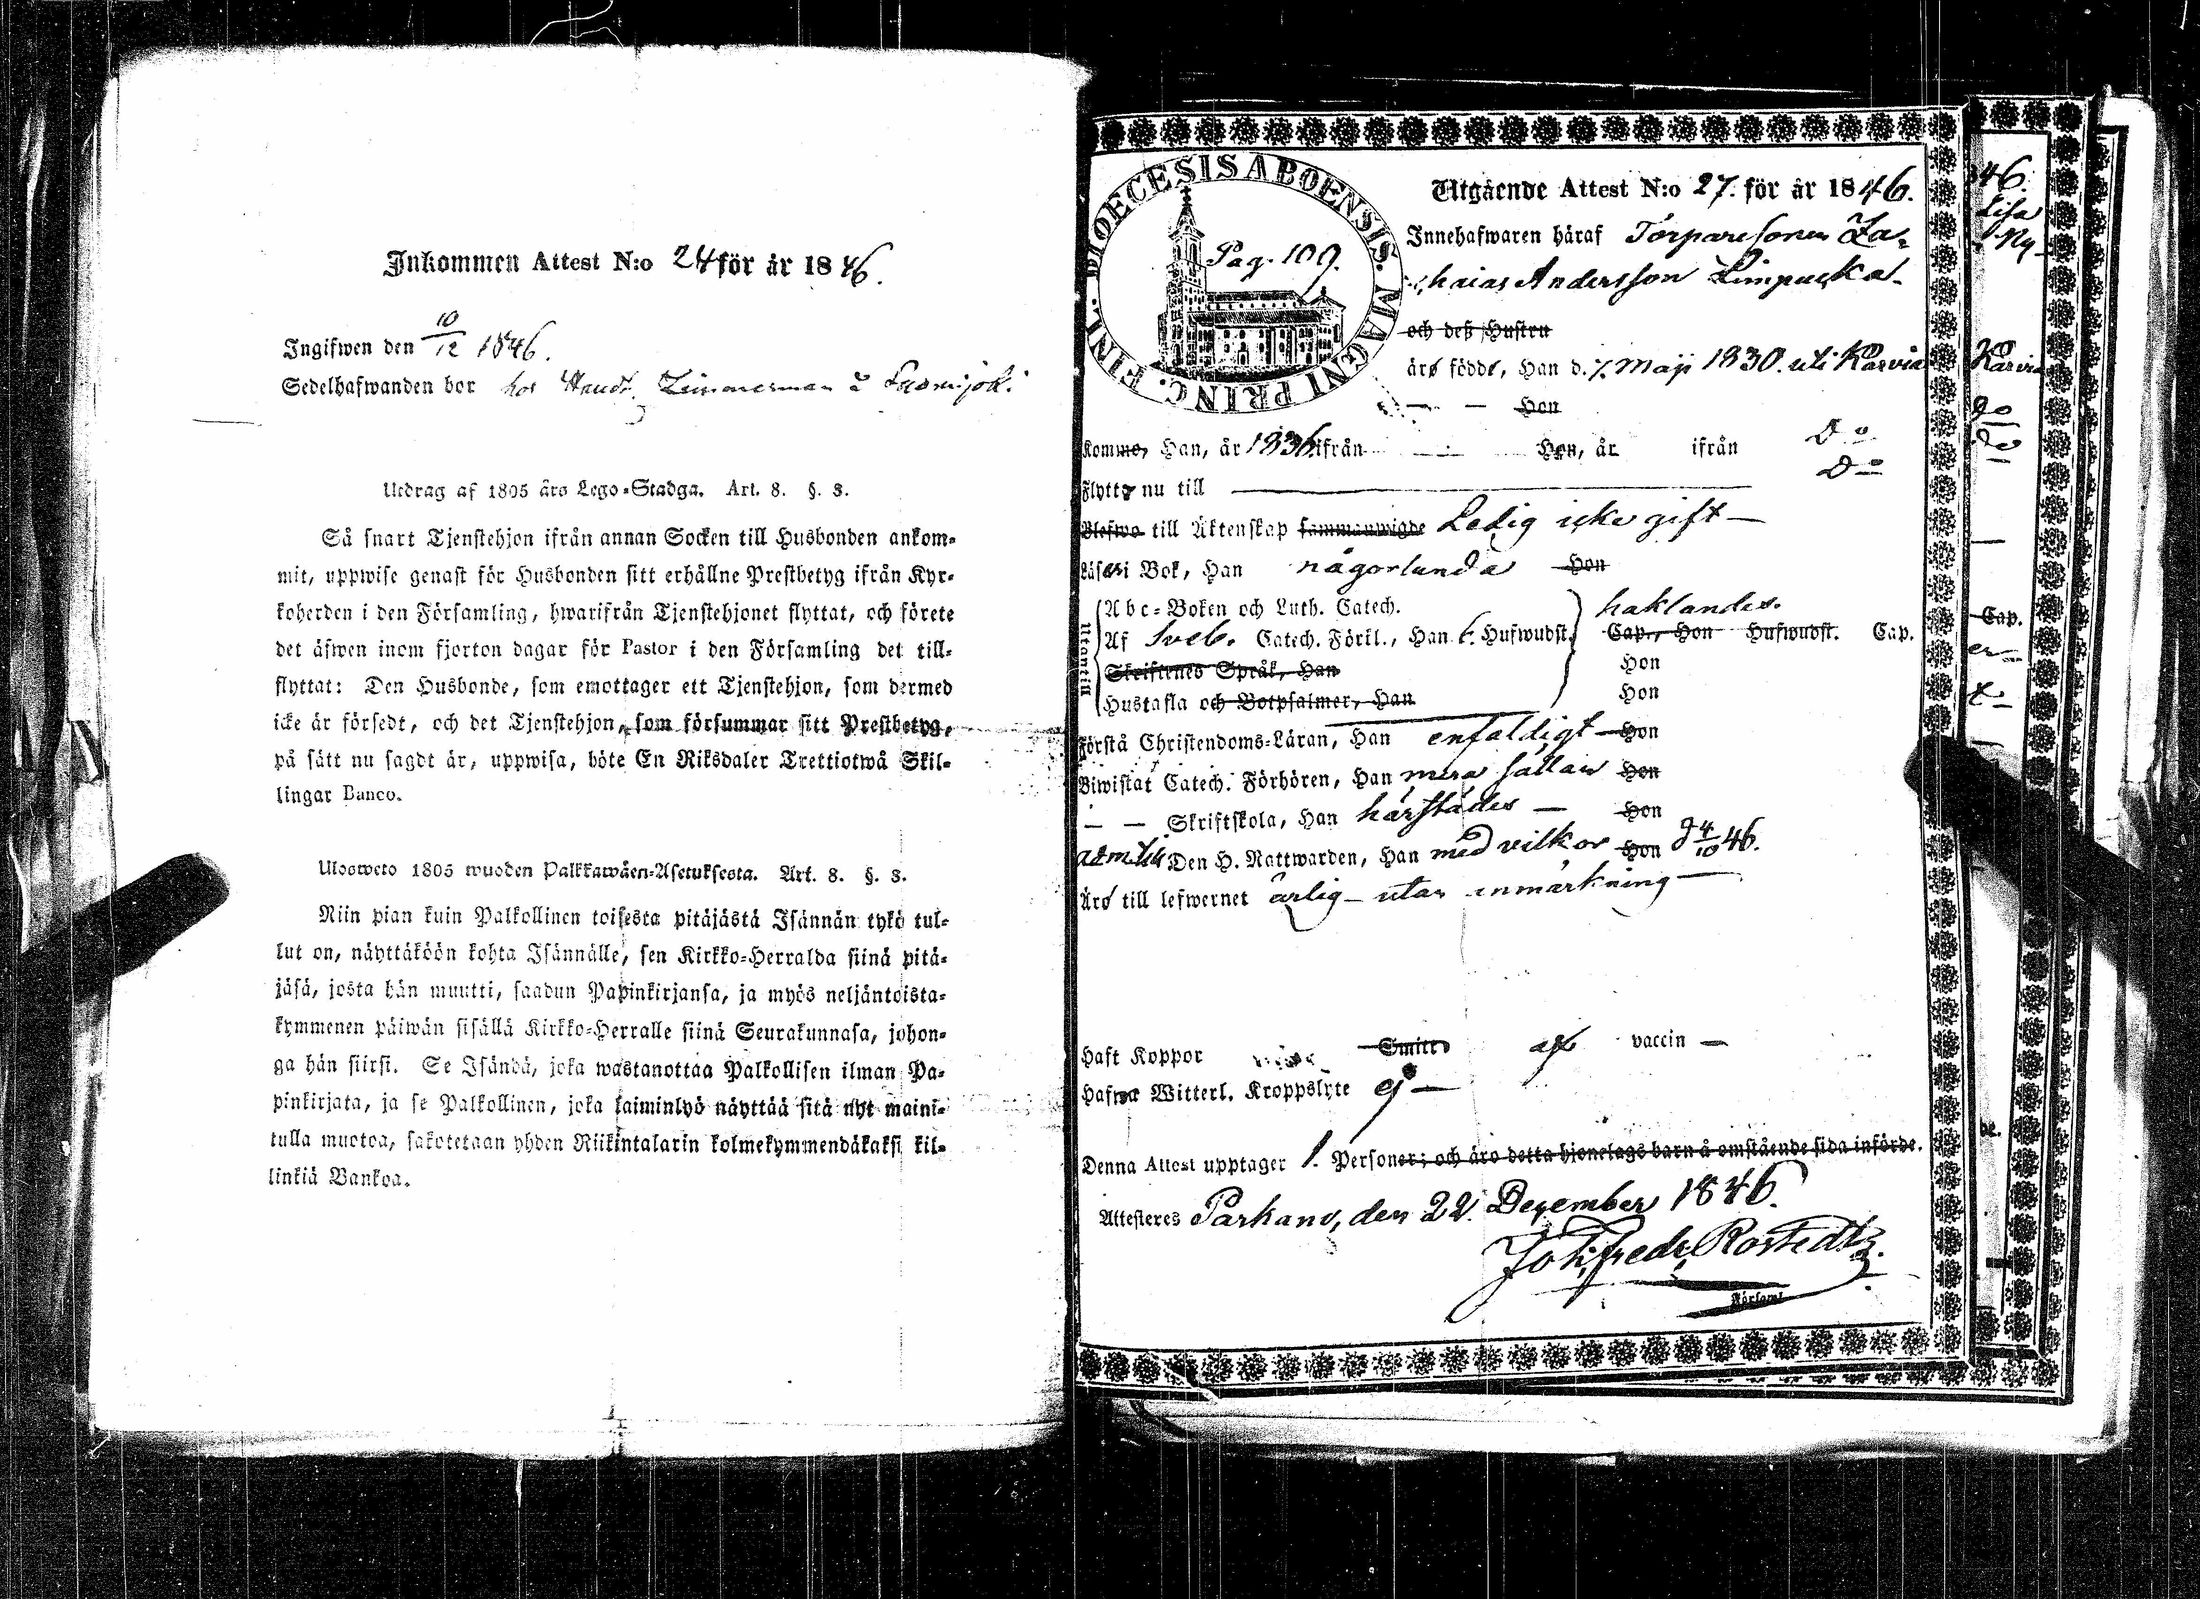 Inkommen Attest N:o 24 för år 1846.
Ingifwen den 10/12 1846.
Sedelhafwanden bor hos Handl. Zimmerman
Utdrag af 1805 års Lego-Stadga. Art. 8. §. 3.
Så snart Tjenstehjon ifrån annan Socken till Husbonden ankom-
mit, uppwise genast för Husbonden sitt erhållne Prestbetyg ifrån Kyr-
koherden i den Församling, hwarifrån Tjenstehjonet flyttat, och förete
det äfwen inom fjorton dagar för Pastor i den Församling det till-
flyttat: Den Husbonde, som emottager ett Tjenstehjon, som dermed
icke är försedt, och det Tjenstehjon, som försummar sitt Prestbetyg,
på sätt nu sagdt är, uppwisa, böte En Riksdaler Trettiotwå Skil-
lingar Banco.
Ulosweto 1805 wuoden Palkkawäen-Asetuksesta. Art. 8. §. 3.
Niin pian kuin Palkollinen toisesta pitäjästä Isännän tykö tul-
lut on, näyttäköön kohta Isännälle, sen Kirkko-Herralda siinä pitä-
jäsä, josta hän muutti, saadun Papinkirjansa, ja myös neljäntoista-
kymmenen päiwän sisällä Kirkko-Herralle siinä Seurakunnasa, johon-
ga hän siirsi. Se Isändä, joka wastanottaa Palkollisen ilman Pa-
pinkirjata, ja se Palkollinen, joka laiminlyö näyttää sitä nyt maini-
tulla muotoa, sakotetaan yhden Riikintalarin kolmekymmendäkaksi kil-
linkiä Bankoa.
DIOECESIS ABOENSIS. MAGNI PRINC. FINL.
Pag. 109.
Utgående Attest N:o 27. för år 1846.
Innehafwaren häraf Torparesonen Za-
chaias Andersson Limpuska.
och deß Hustru
äro född, Han d. 7. Maji 1830. uti Karvia
— — Hon D:o
Komme, Han, år 1836. ifrån Hon, år ifrån D:o
Flytta nu till
Blefwo till Äktenskap sammanwigde Ledig icke gift —
Läser i Bok, Han någorlunda Hon
Utantill
Abc-Boken och Luth. Catech. haklandes.
Af Sveb. Catech. Förkl., Han 6. Hufwudst. Cap., Hon Hufwudst. Cap.
Skriftenes Språk, Han Hon
Hustafla och Botpsalmer, Han Hon
Förstå Christendoms-Läran, Han enfaldigt Hon
Biwistat Catech. Förhören, Han mera sällan Hon
— — Skriftskola, Han härstädes — Hon
Den H. Nattwarden, Han med vilkor Hon d 4/10 46.
Äro till lefwernet ärlig — utan anmärkning —
Haft Koppor Smitt af vaccin —
Hafwa Witterl. Kroppslyte ej —
Denna Attest upptager 1. Personer; och äro detta hjonelags barn å omstående sida införde.
Attesteres Parkano, den 22. December 1846.
Joh. Fredr. Rostedt
46.
Lisa
Karvia
D:o
D:o
Cap.